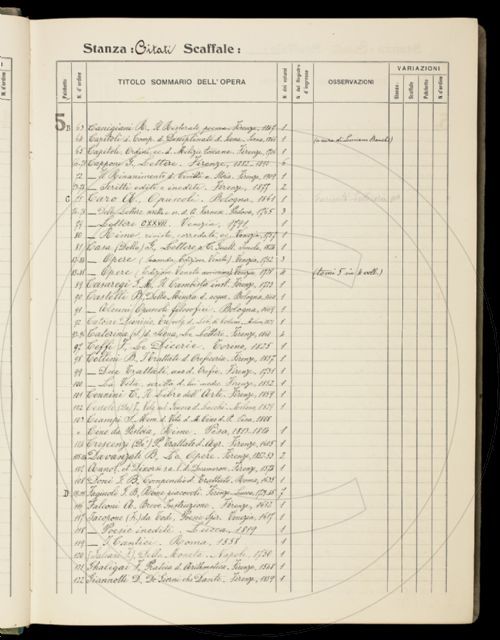 Stanza: Citati Scaffale:
VARIAZIONI
Palchetto
N. d'ordine
TITOLO SOMMARIO DELL'OPERA
N. dei volumi
N. del Registro d'ingresso
OSSERVAZIONI
Stanza
Scaffale
Palchetto
N. d'ordine
5 B 63 Canigiani R., Il Ristorato, poema. Firenze, 1
64 Capitoli d. Comp. d. Disciplinati di Siena. Siena, 1 (a cura di Luciano Banchi)
65 Capitoli, Ordini, 1
Capponi G., Lettere. Firenze, 1882-1890 6
72 — Il Rinascimento d. Civiltà e Sto. Firenze, 1909 1
— Scritti editi e inediti. Firenze, 1877 2
C 75 Caro A., Opuscoli. Bologna, 1861 1
— Delle Lettere scritte a n. d. A. Farnese. Padova, 1765 3
79 — Lettere CXXVII. Venezia, 1791 1
80 — Rime Venezia, 1757 1
81 Casa (Della) G., Lettere a C. Gualt. Imola, 1
— Opere Venezia, 1752 3
— Opere Venezia, 4 (tomi 5 in 4 voll.)
89 Casaregi G. M., Il Cambista instr. Firenze, 1723 1
90 Castelli B., Della Misura d. acqua. Bologna, 1660 1
91 — Alcuni Opuscoli filosofici. Bologna, 1669 1
92 Catone Dionisio, 1
Caterina (S.) d. Siena, Le Lettere. Firenze, 1860 4
97 Ceffi F., Le Dicerie. Torino, 1825 1
98 Cellini B., I Trattati d. Oreficeria. Firenze, 1857 1
99 — Due Trattati, uno d. Orefic. Firenze, 1731 1
100 — La Vita, scritta di lui medes. Firenze, 1852 1
101 Cennini C., Il Libro dell'Arte. Firenze, 1859 1
102 1
Ciampi S., Mem. d. Vita di M. Cino d. P. Pisa, 1808
Cino da Pistoia, Rime. Pisa, 1813-1814 1
Crescenzi (De') P., Trattato d. Agr. Firenze, 1605 1
Davanzati B., Le Opere. Firenze, 1852-53 2
107 1
108 Doni G. B., Compendio d. Trattato. Roma, 1635 1
D Fagiuoli G. B., Rime piacevoli. Firenze-Lucca, 1729-45 7
116 Falconi A., Breve Instruzione. Firenze, 1612 1
117 Jacopone (fr.) da Todi, Poesie Spir. Venezia, 1617 1
118 — Poesie inedite. Lucca, 1819 1
119 — I Cantici. Roma, 1558 1
120 (Galiani F.), Della Moneta. Napoli, 1750 1
121 Ghaligai F., Pratica d. Arithmetica. Firenze, 1548 1
122 Giannotti D., De' Giorni che Dante. Firenze, 1859 1